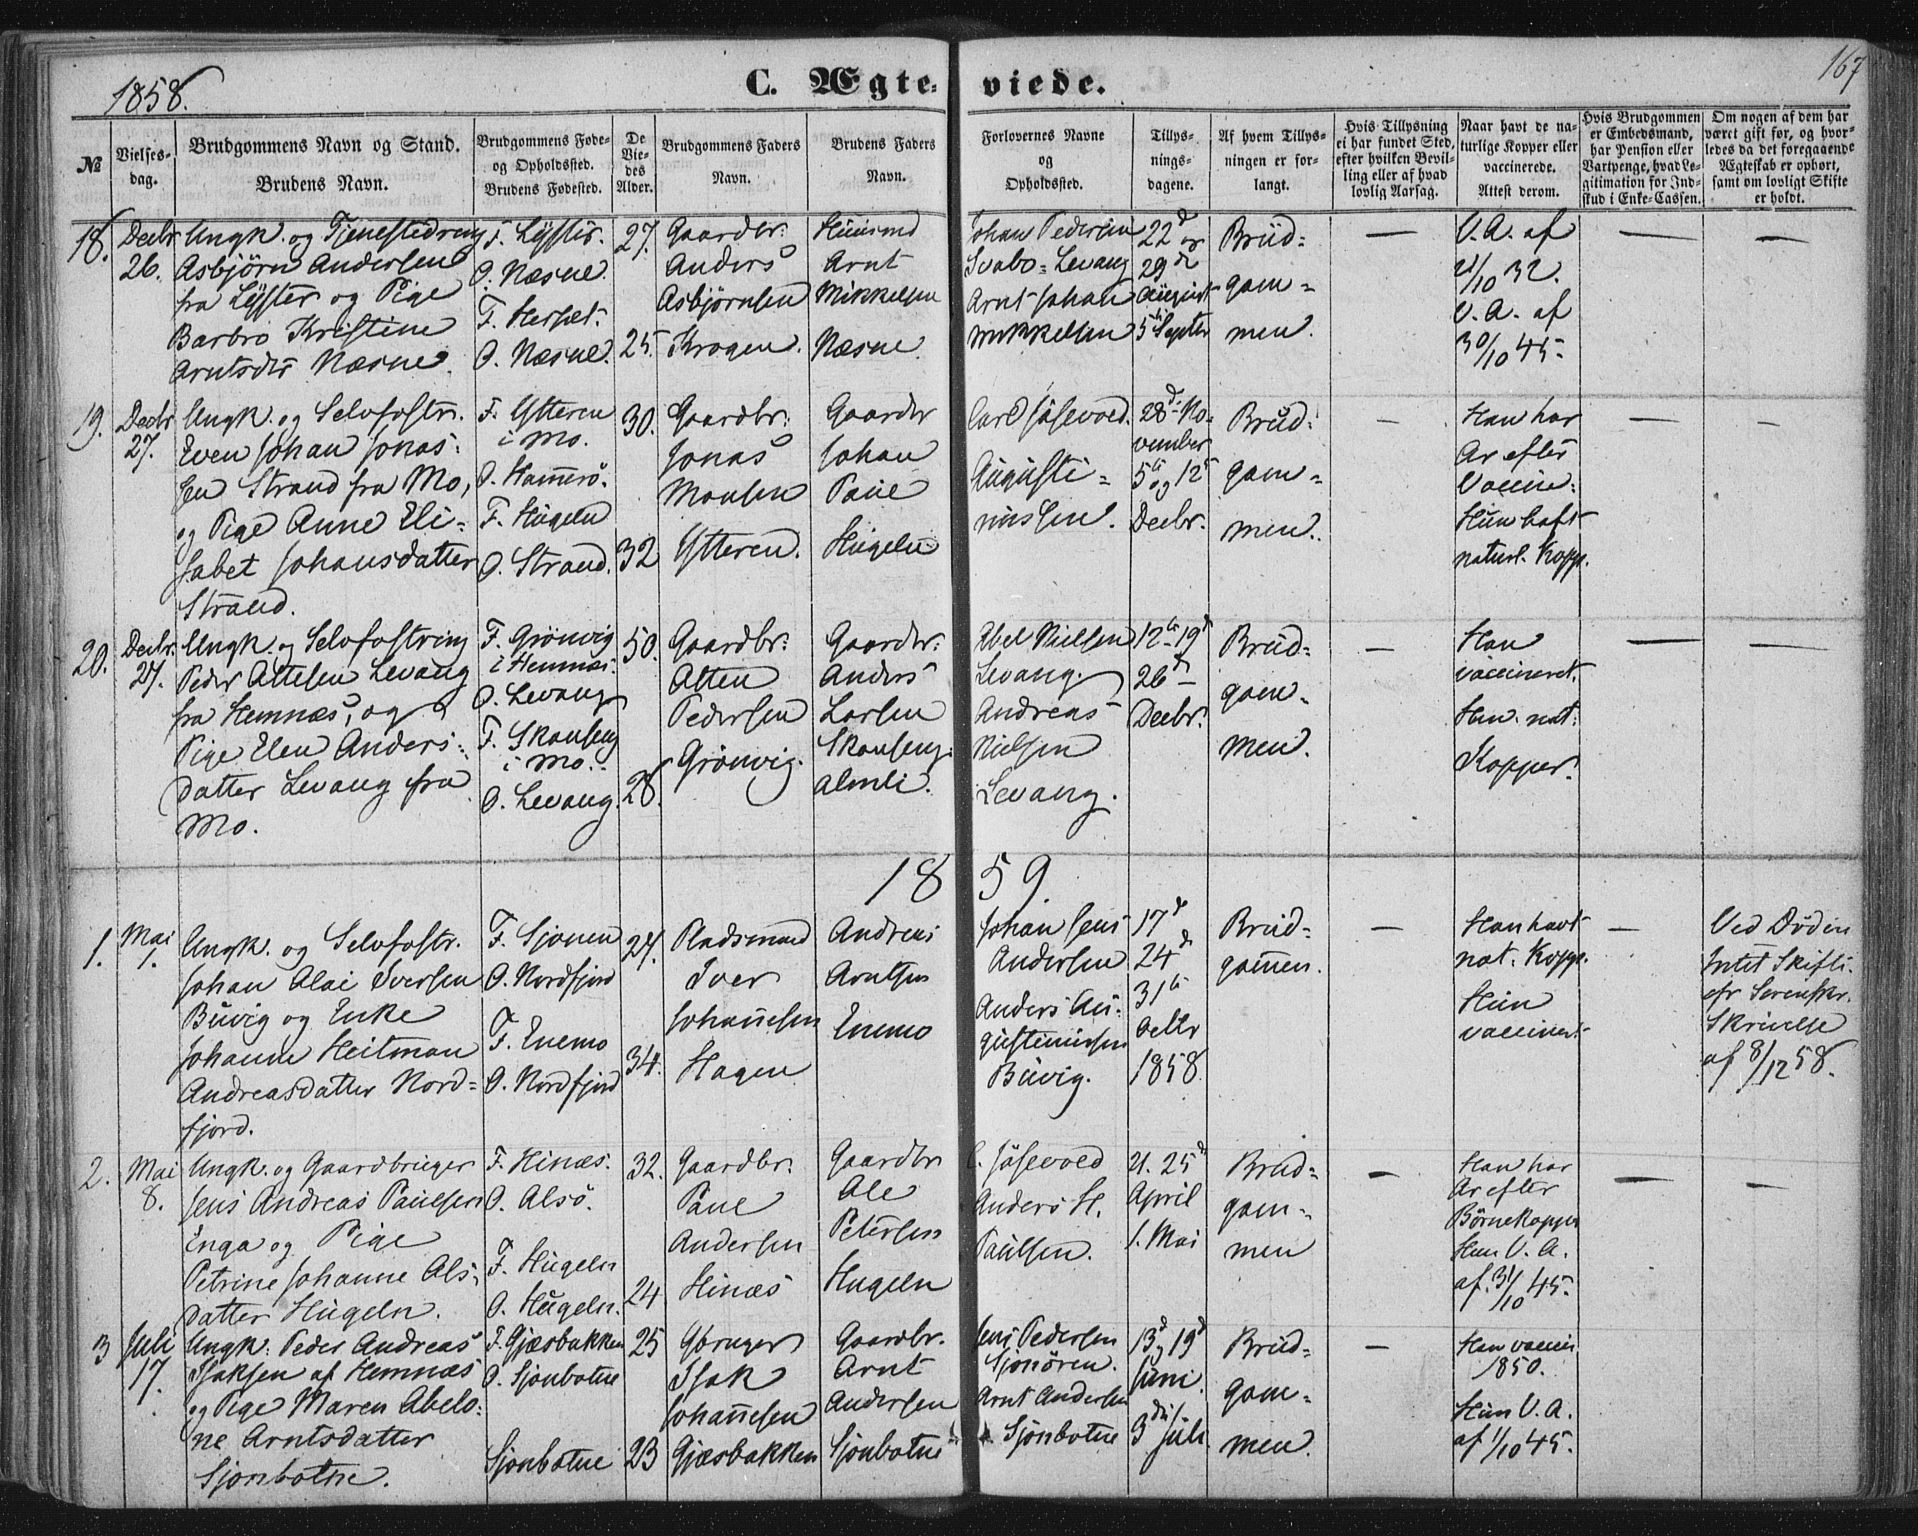 1858.
C. Ægte-
viede.
167
№
Vielses-
dag.
Brudgommens Navn og Stand.
Brudens Navn.
Brudgommens Føde-
og Opholdssted.
Brudens Fødested.
De
Vie-
des
Alder.
Brudgommens Faders
Navn.
Brudens Faders
Navn.
Forlovernes Navne
og
Opholdssted.
Tillys-
nings-
dagene.
Af hvem Tillys-
ningen er for-
langt.
Hvis Tillysning
ei har fundet Sted,
efter hvilken Bevil-
ling eller af hvad
lovlig Aarsag.
Naar havt de na-
turlige Kopper eller
vaccinerede.
Attest derom.
Hvis Brudgommen
er Embedsmand,
har Pension eller
Vartpenge, hvad Le-
gitimation for Ind-
skud i Enke-Cassen.
Om nogen af dem har
været gift før, og hvor-
ledes da det foregaaende
Ægteskab er ophørt,
samt om lovligt Skifte
er holdt.
18.
Decbr
26.
Ungk. og Tjenestedreng
Asbjørn Andersen
fra Lyster og Pige
Barbro Kristine
Arntsdtr Næsne.
F. Lyster.
O. Næsne.
F. Herset.
O. Næsne.
27.
25.
Gaardbr.
Anders
Asbjørnsen
Krogen.
Huusmd
Arnt
Mikkelsen
Næsne.
Johan Pedersen
Svabo-Levang
Arnt Johan
Mikkelsen
22d og
29de
August
5te Septer
Brud-
gom-
men.
—
V. A. af
21/10 32.
V. A. af
30/10 45.
—
—
19.
Decbr
27.
Ungk. og Selvfostr.
Even Johan Jonas-
sen Strand fra Mo,
og Pige Anne Eli-
sabet Johansdatter
Strand.
F. Ytteren
i Mo.
O. Hammerö.
F. Hugeln
O. Strand.
30.
32
Gaardbr.
Jonas
Monsen
Ytteren.
Gaardbr
Johan
Paul
Hugeln
Carl Jösevold.
Augusti-
nussen.
28de No-
vember
5te og 12te
Decbr.
Brud-
gom-
men.
—
Han har
Ar efter
Vaccine.
Hun haft
naturl. Kopp.
—
—
20.
Decbr.
27.
Ungk. og Selvfostring
Peder Attesen Levang
fra Hemnæs, og
Pige Elen Anders-
datter Levang fra
Mo.
F. Grönvig
i Hemnæs.
O. Levang
F. Skonseng
i Mo.
O. Levang.
50.
28.
Gaardbr.
Atten
Pedersen
Grönvig.
Gaardbr.
Anders
Larsen
Skonseng-
almli.
Abel Nielsen
Levang.
Andreas
Nielsen
Levang.
12te 19de
26de
Decbr.
Brud-
gom-
men.
—
Han
vaccineret.
Hun. nat.
Kopper.
—
—
18
59.
1.
Mai
1.
Ungk. og Selvfostr.
Johan Alai Iversen
Buvig og Enke
Johanne Heitman
Andreasdatter Nord-
fjord.
F. Sjonen
O. Nordfjord
F. Enemo
O. Nordfjord
27.
34.
Pladsmand
Iver
Johannesen
Hagen
Andreas
Arntsen
Enemo
Johan Jens
Andersen
Anders Au-
gustinusen
Buvig.
17de
24de
31te
Octbr
1858
Brud-
gommen.
—
Han havt
nat. Kopp.
Hun
vaccinert.
—
Ved Döden
Intet Skifte
efr Sorenskr.
Skrivelse
af 8/12 58.
2.
Mai
8.
Ungk. og Gaardbruger
Jens Andreas Paulsen
Enga og Pige
Petrine Johanne Als-
datter Hugeln.
F. Hinæs.
O. Alsö.
F. Hugeln
O. Hugeln.
32.
24
Gaardbr.
Paul
Andersen
Hinæs
Gaardbr
Ale
Petersen
Hugeln
C. Jösevold
Anders H.
Paulsen.
21. 25de
April
1. Mai
Brud-
gom-
men
—
Han har
Ar efter
Börnekopper
Hun V. A.
af 31/10 45.
—
—
3
Juli
17.
Ungk. Peder Andreas
Isaksen af Hemnæs
og Pige Maren Abelo-
ne Arntsdatter
Sjonbotne.
F. Gjæsbakken
O. Sjonbotne
Sjonbotne
25
23
Gbruger
Isak
Johannesen
Gjæsbakken
Gaardbr.
Arnt
Andersen
Sjonbotne
Jens Pedersen
Sjonören.
Arnt Andersen
Sjonbotne
13de og 19de
Juni.
3die Juli.
Brud-
gom-
men.
—
Han vaccin
1850.
Hun V. A.
af 1/10 45.